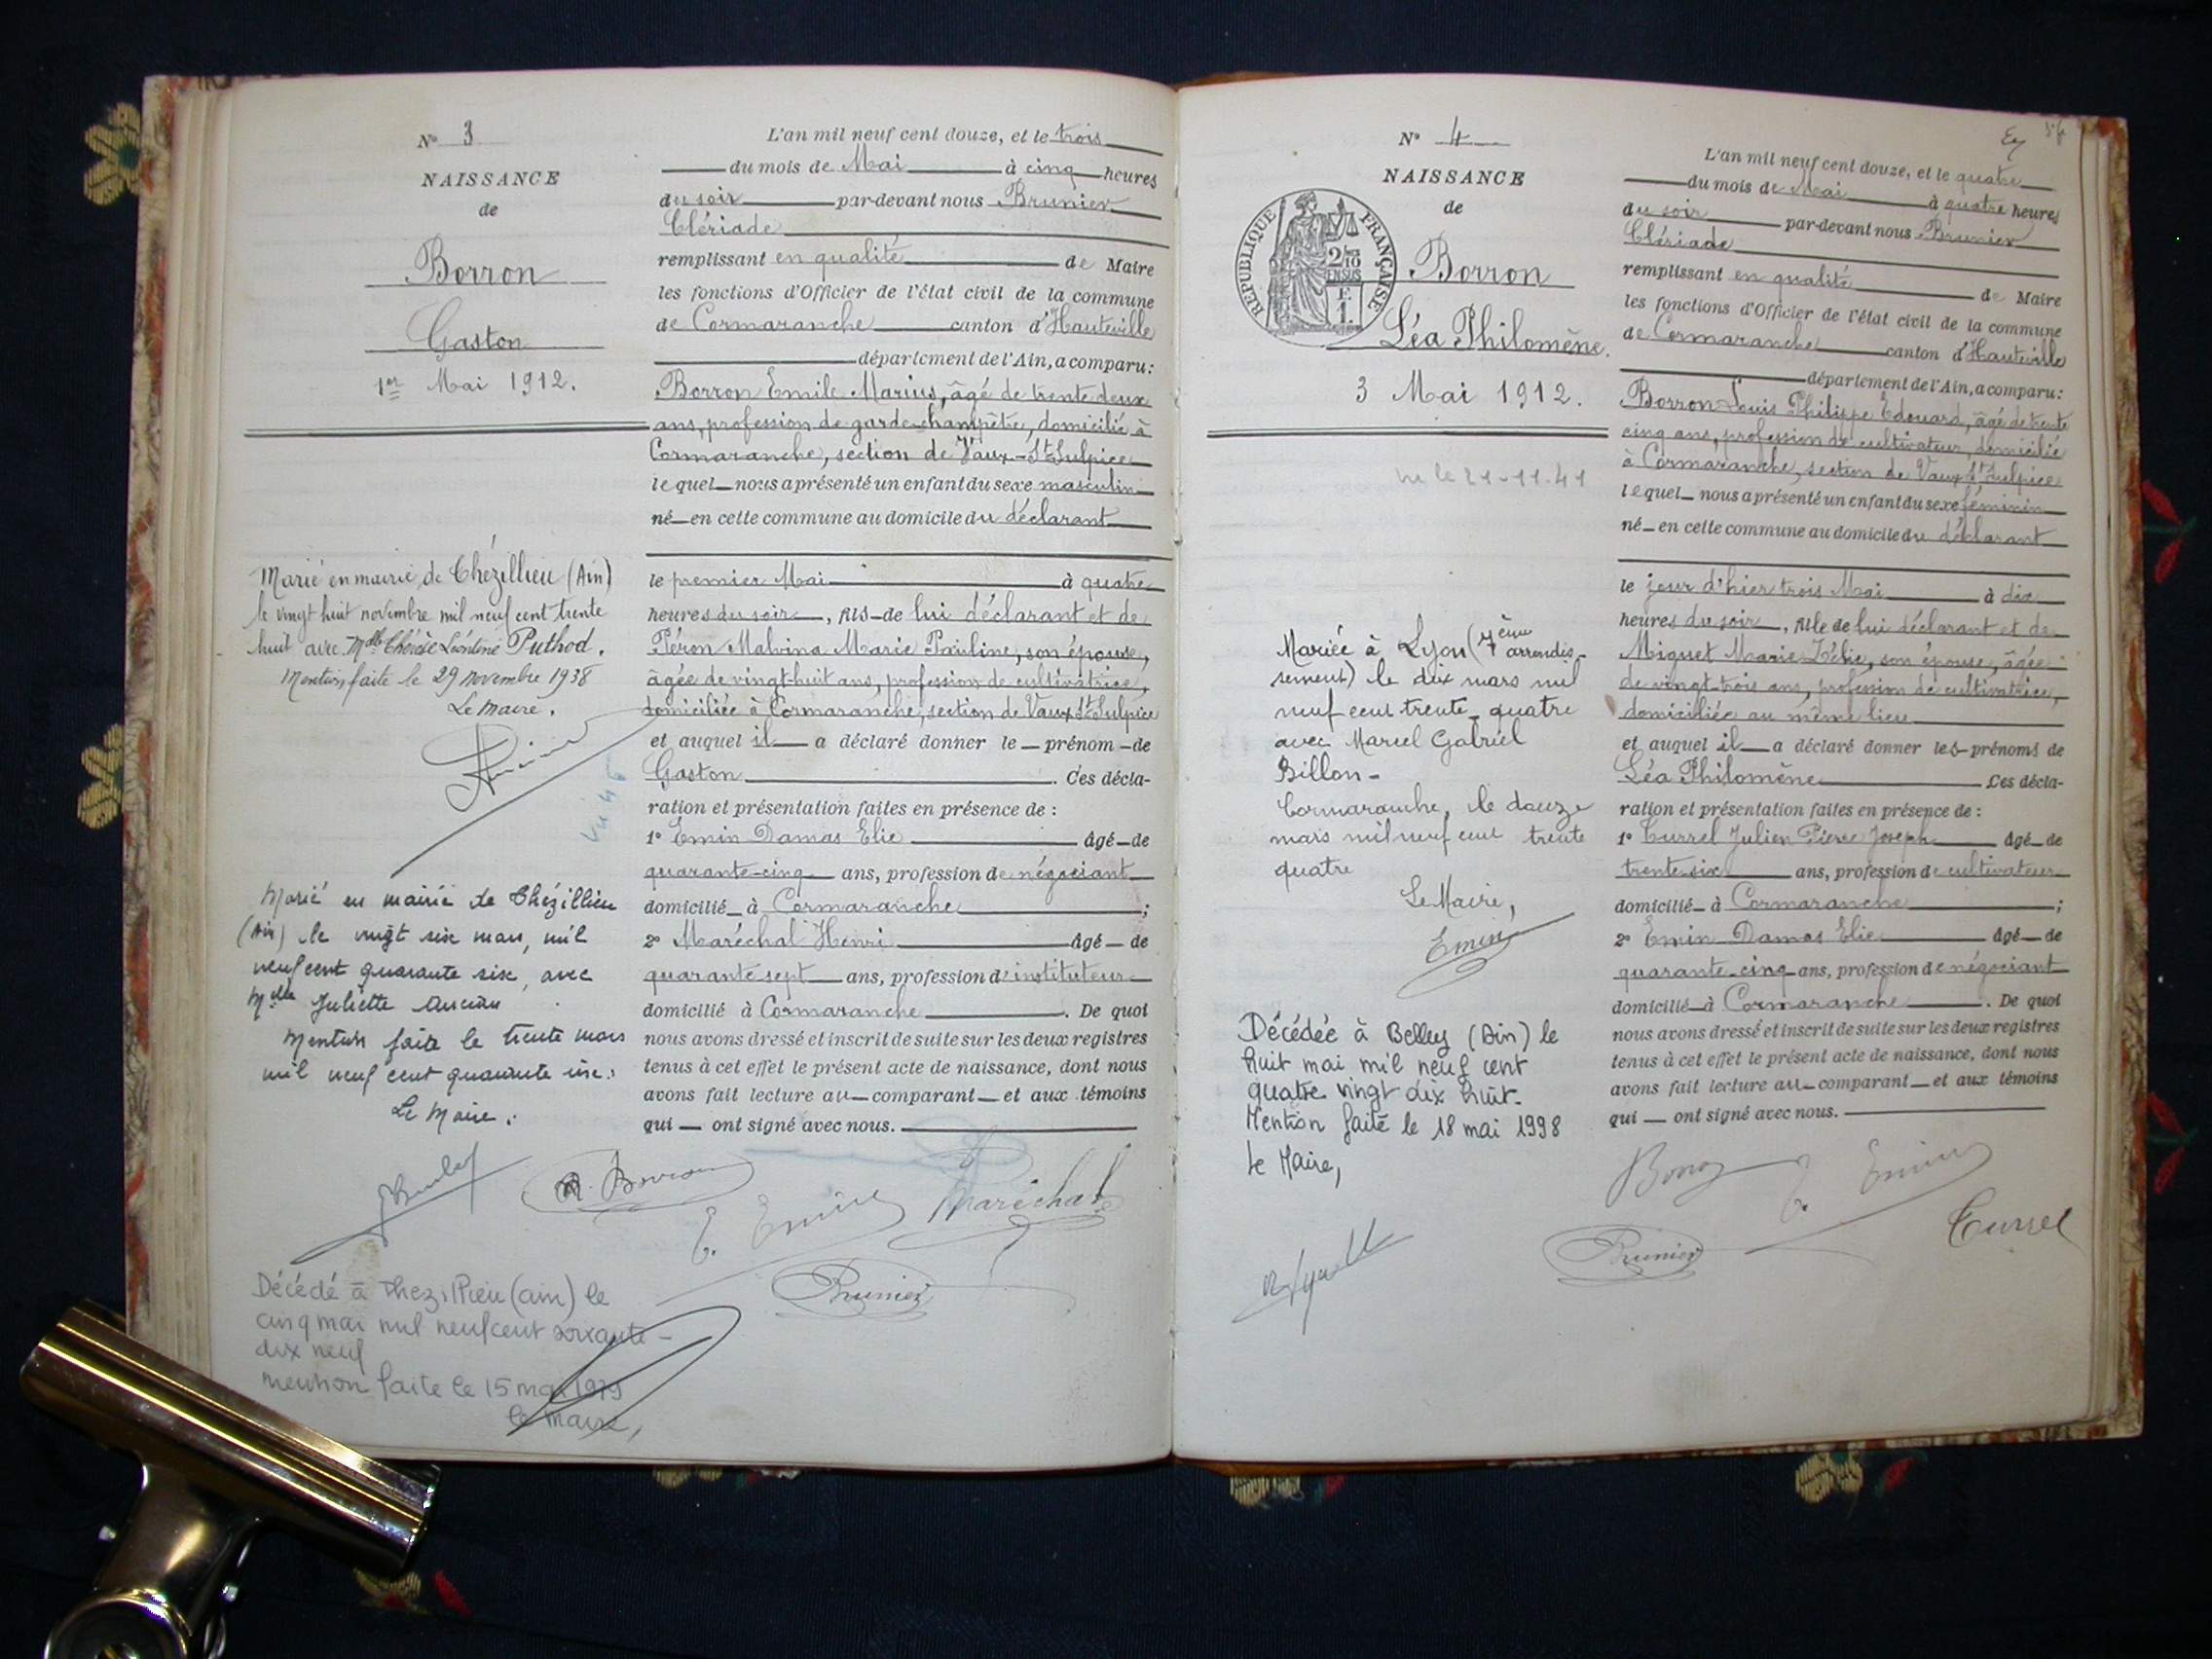 N° 3
NAISSANCE
de
Borron
Gaston
1er Mai 1912.
Marié en mairie de Thézillieu (Ain)
le vingt huit novembre mil neuf cent trente
huit avec Mlle Thérèse Léontine Puthod.
Mention faite le 29 novembre 1938
Le Maire.
Marié en mairie de Thézillieu
(Ain) le vingt six mars, mil
neuf cent quarante six, avec
Mlle Juliette
Mention faite le trente mars
mil neuf cent quarante six.
Le Maire :
Décédé à Thézillieu (ain) le
cinq mai mil neuf cent soixante-
dix neuf
mention faite le 15 mai 1979
le maire,
L'an mil neuf cent douze, et le trois
du mois de Mai à cinq heures
du soir par-devant nous Brunier
Clériade
remplissant en qualité de Maire
les fonctions d'Officier de l'état civil de la commune
de Cormaranche canton d'Hauteville
département de l'Ain, a comparu :
Borron Emile Marius, âgé de trente deux
ans, profession de garde-champêtre, domicilié à
Cormaranche, section de Vaux-St Sulpice
lequel nous a présenté un enfant du sexe masculin
né en cette commune au domicile du déclarant
le premier Mai à quatre
heures du soir, fils de lui déclarant et de
Péron Malvina Marie Pauline, son épouse,
âgée de vingt-huit ans, profession de cultivatrice,
domiciliée à Cormaranche, section de Vaux St Sulpice
et auquel il a déclaré donner le prénom de
Gaston. Ces décla-
ration et présentation faites en présence de :
1° Emin Damas Elie âgé de
quarante-cinq ans, profession de négociant
domicilié à Cormaranche ;
2° Maréchal Henri âgé de
quarante sept ans, profession d'instituteur
domicilié à Cormaranche. De quoi
nous avons dressé et inscrit de suite sur les deux registres
tenus à cet effet le présent acte de naissance, dont nous
avons fait lecture au comparant et aux témoins
qui ont signé avec nous.
Borron
E. Emin
Maréchal
Brunier
N° 4
NAISSANCE
de
REPUBLIQUE FRANÇAISE
2/10
EN SUS
F.
1.
Borron
Léa Philomène.
3 Mai 1912.
Vu le 21-11-41
Mariée à Lyon (7ème arrondis-
sement) le dix mars mil
neuf cent trente-quatre
avec Marcel Gabriel
Billon-
Cormaranche, le douze
mars mil neuf cent trente
quatre
Le Maire,
Emin
Décédée à Belley (Ain) le
huit mai mil neuf cent
quatre vingt dix huit.
Mention faite le 18 mai 1998
Le Maire,
L'an mil neuf cent douze, et le quatre
du mois de Mai à quatre heures
du soir par-devant nous Brunier
Clériade
remplissant en qualité de Maire
les fonctions d'Officier de l'état civil de la commune
de Cormaranche canton d'Hauteville
département de l'Ain, a comparu :
Borron Louis Philippe Edouard, âgé de trente
cinq ans, profession de cultivateur, domicilié
à Cormaranche, section de Vaux St Sulpice
lequel nous a présenté un enfant du sexe féminin
né en cette commune au domicile du déclarant
le jour d'hier trois Mai à dix
heures du soir, fille de lui déclarant et de
Miguet Marie Zélie, son épouse, âgée
de vingt-trois ans, profession de cultivatrice,
domiciliée au même lieu
et auquel il a déclaré donner les prénoms de
Léa Philomène Ces décla-
ration et présentation faites en présence de :
1° Turrel Julien Pierre Joseph âgé de
trente six ans, profession de cultivateur
domicilié à Cormaranche ;
2° Emin Damas Elie âgé de
quarante-cinq ans, profession de négociant
domicilié à Cormaranche. De quoi
nous avons dressé et inscrit de suite sur les deux registres
tenus à cet effet le présent acte de naissance, dont nous
avons fait lecture au comparant et aux témoins
qui ont signé avec nous.
E. Emin
Brunier
Turrel